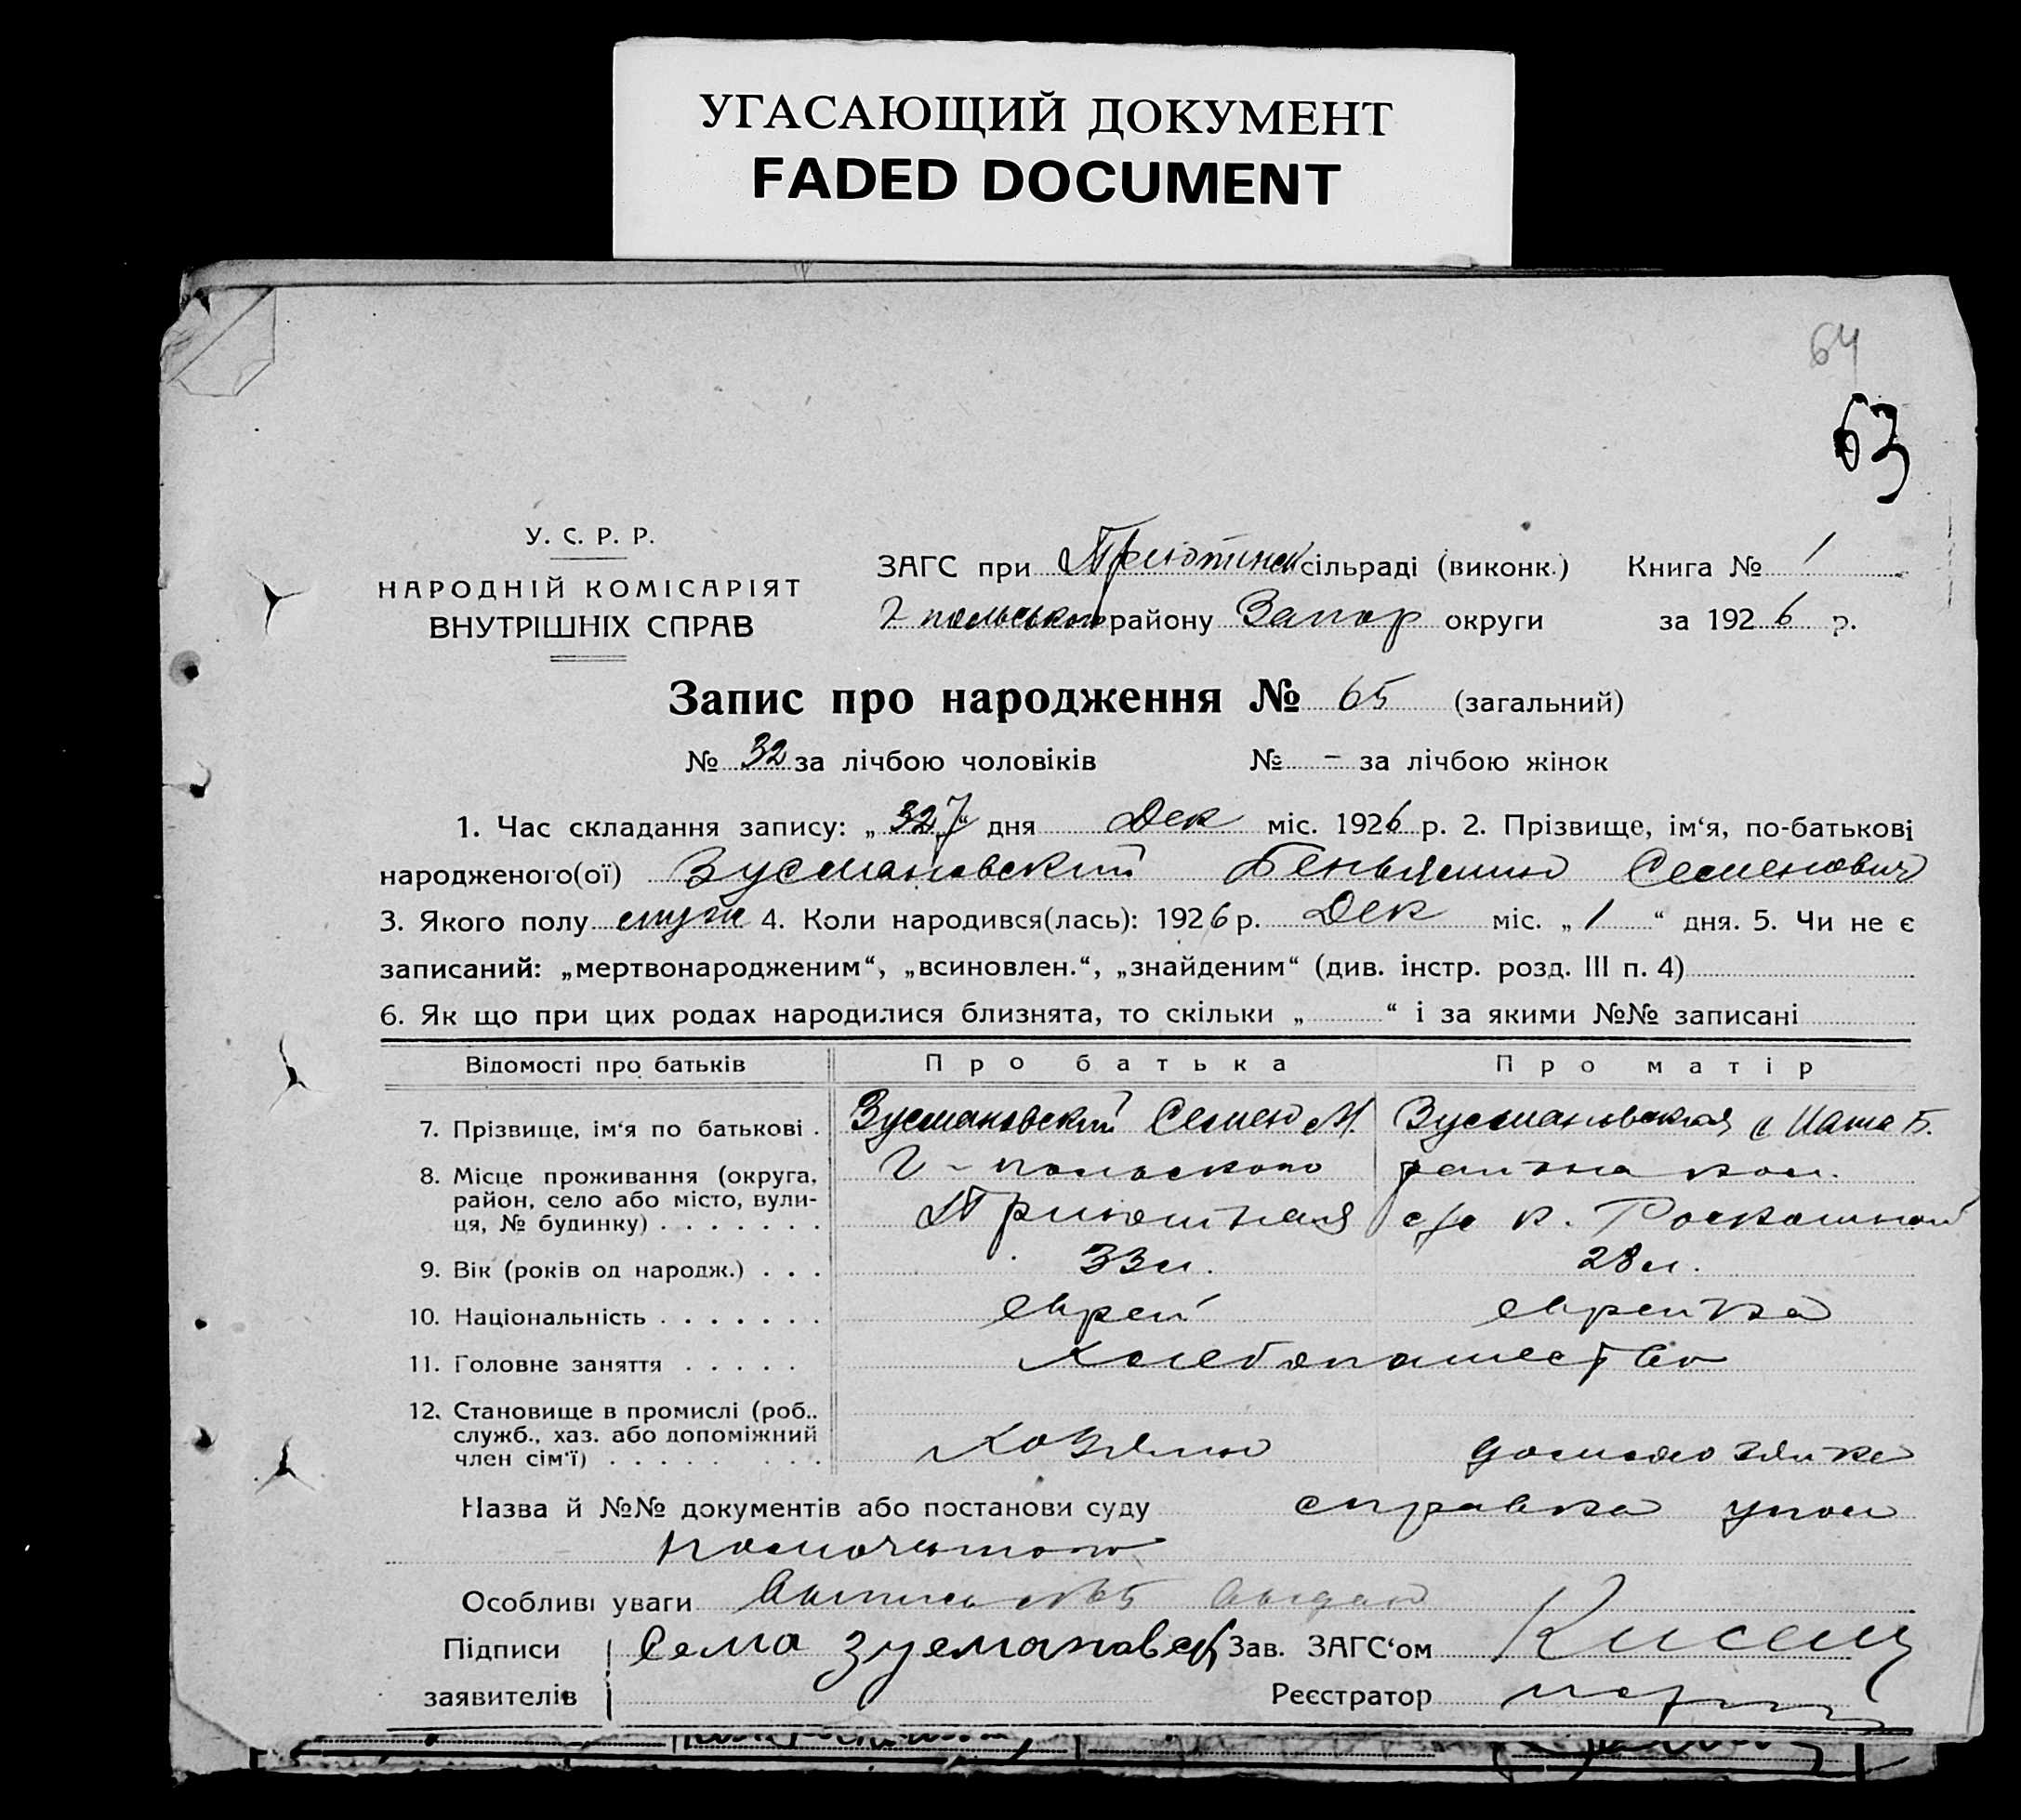 УГАСАЮЩИЙ ДОКУМЕНТ
FADED DOCUMENT
64
63
У. С. Р. Р.
НАРОДНІЙ КОМІСАРІЯТ
ВНУТРІШНІХ СПРАВ
ЗАГС при Приютинск сільраді (виконк.) Книга № 1
Г польського району Запор округи за 1926 р.
Запис про народження № 65 (загальний)
№ 32 за лічбою чоловіків № – за лічбою жінок
1. Час складання запису: „ 7 “ дня Дек міс. 1926 р. 2. Прізвище, ім‘я, по-батькові
народженого(ої) Зусмановский Беньямин Семенович
3. Якого полу муж 4. Коли народився(лась): 1926 р. Дек міс. „ 1 “ дня. 5. Чи не є
записаний: „мертвонародженим“, „всиновлен.“, „знайденим“ (див. інстр. розд. III п. 4)
6. Як що при цих родах народилися близнята, то скільки „ “ і за якими №№ записані
Відомості про батьків Про батька Про матір
7. Прізвище, ім‘я по батькові . Зусмановский Семен М. Зусмановская Б.
8. Місце проживання (округа, Г-польского района
район, село або місто, вули- Приютная с/с к. Роскошной
ця, № будинку) . . . . . . .
9. Вік (років од народж.) . . . 33 л. 28 л.
10. Національність . . . . . . . еврей еврейка
11. Головне заняття . . . . . Хлебопашество
12. Становище в промислі (роб..
служб., хаз. або допоміжний
член сім‘ї) . . . . . . . . Хозяин домохозяйка
Назва й №№ документів або постанови суду справка упол
номоченого
Особливі уваги Выпись №65 выдан
Підписи Сема Зусмановск Зав. ЗАГС‘ом
заявителів Реєстратор